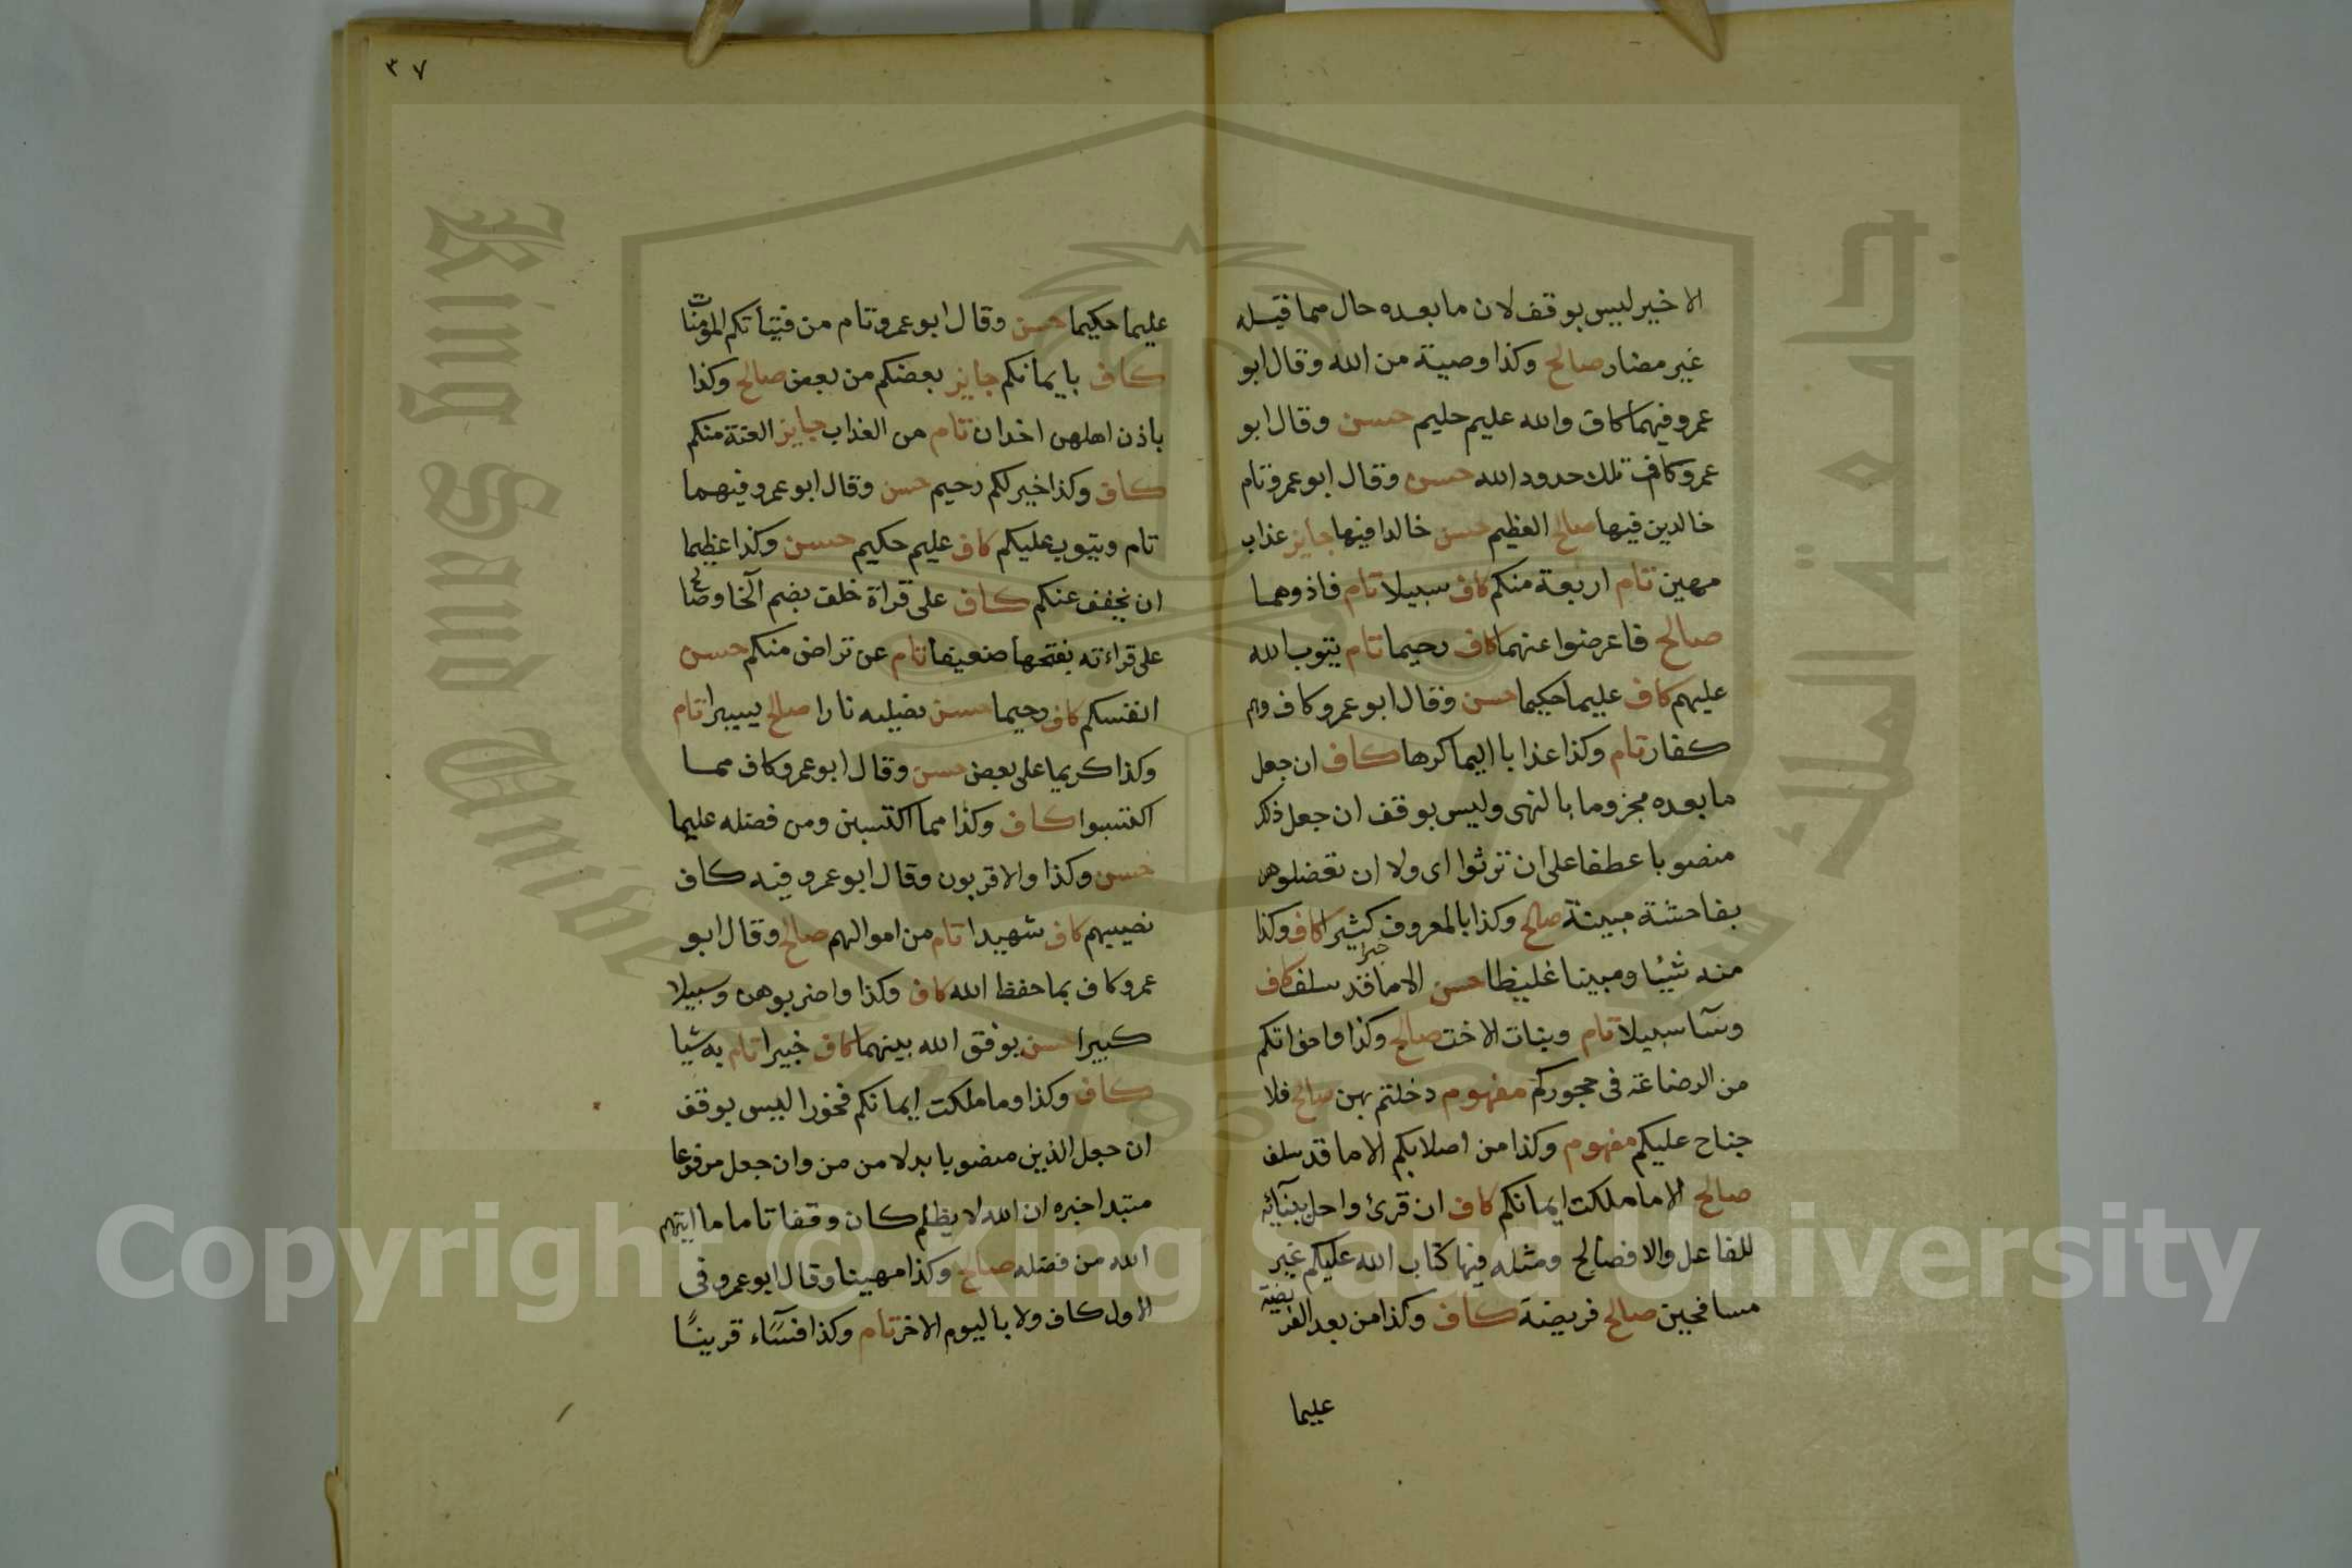 الاخير ليس بوقف لان ما بعده حال مما قبله
غير مضار صالح وكذا وصية من الله وقال ابو
عمرو فيهما كاف والله عليم حليم حسن وقال ابو
عمرو كاف تلك حدود الله حسن وقال ابو عمرو تام
خالدين فيها صالح العظيم حسن خالدا فيها جايز عذاب
مهين تام اربعة منكم كاف سبيلا تام فاذوهما
صالح فاعرضوا عنهما كاف رحيما تام يتوب الله
عليهم كاف عليما حكيما حسن وقال ابو عمرو كاف وهم
كفار تام وكذا عذابا اليما كرها كاف ان جعل
ما بعده مجزوما بالنهى وليس بوقف ان جعل ذلك
منصوبا عطفا على ان ترثوا اى ولا ان تعضلوهن
بفاحشة مبينة صالح وكذا بالمعروف خيرا كثيرا كاف وكذا
منه شيئا ومبينا غليظا حسن الا ما قد سلف كاف
وسآ سبيلا تام وبنات الاخت صالح وكذا واخواتكم
من الرضاعة فى حجوركم مفهوم دخلتم بهن صالح فلا
جناح عليكم مفهوم وكذا من اصلابكم الا ما قد سلف
صالح الا ما ملكت ايمانكم كاف ان قرئ واحل ببنآئه
للفاعل والا فصالح ومثله فيها كتاب الله عليكم غير
مسافحين صالح فريضة كاف وكذا من بعد الفريضة
عليما
٣٧
عليما حكيما حسن وقال ابو عمرو تام من فتياتكم المؤمنات
كاف بايمانكم جايز بعضكم من بعض صالح وكذا
باذن اهلهن اخدان تام من العذاب جايز العنة منكم
كاف وكذا خير لكم رحيم حسن وقال ابو عمرو فيهما
تام ويتوب عليكم كاف عليم حكيم حسن وكذا عظيما
ان يخفف عنكم كاف على قراة خلق بضم الخا وصالح
على قراءته بفتحها ضعيفا تام عن تراض منكم حسن
انفسكم كاف رحيما حسن نصليه نارا صالح يسيرا تام
وكذا كريما على بعض حسن وقال ابو عمرو كاف مما
اكتسبوا كاف وكذا مما اكتسبن ومن فضله عليما
حسن وكذا والاقربون وقال ابو عمرو فيه كاف
نصيبهم كاف شهيدا تام من اموالهم صالح وقال ابو
عمرو كاف بما حفظ الله كاف وكذا واضربوهن وسبيلا
كبيرا حسن يوفق الله بينهما كاف خبيرا تام به شيا
كاف وكذا وما ملكت ايمانكم فخورا ليس بوقف
ان جعل الذين منصوبا بدلا من من وان جعل مرفوعا
مبتدا خبره ان الله لا يظلم كان وقفا تاما ما اتيهم
الله من فضله صالح وكذا مهينا وقال ابو عمرو فى
الاول كاف ولا باليوم الاخر تام وكذا فسآء قرينًا
King Saud University
جامعة الملك سعود
1957
Copyright © King Saud University